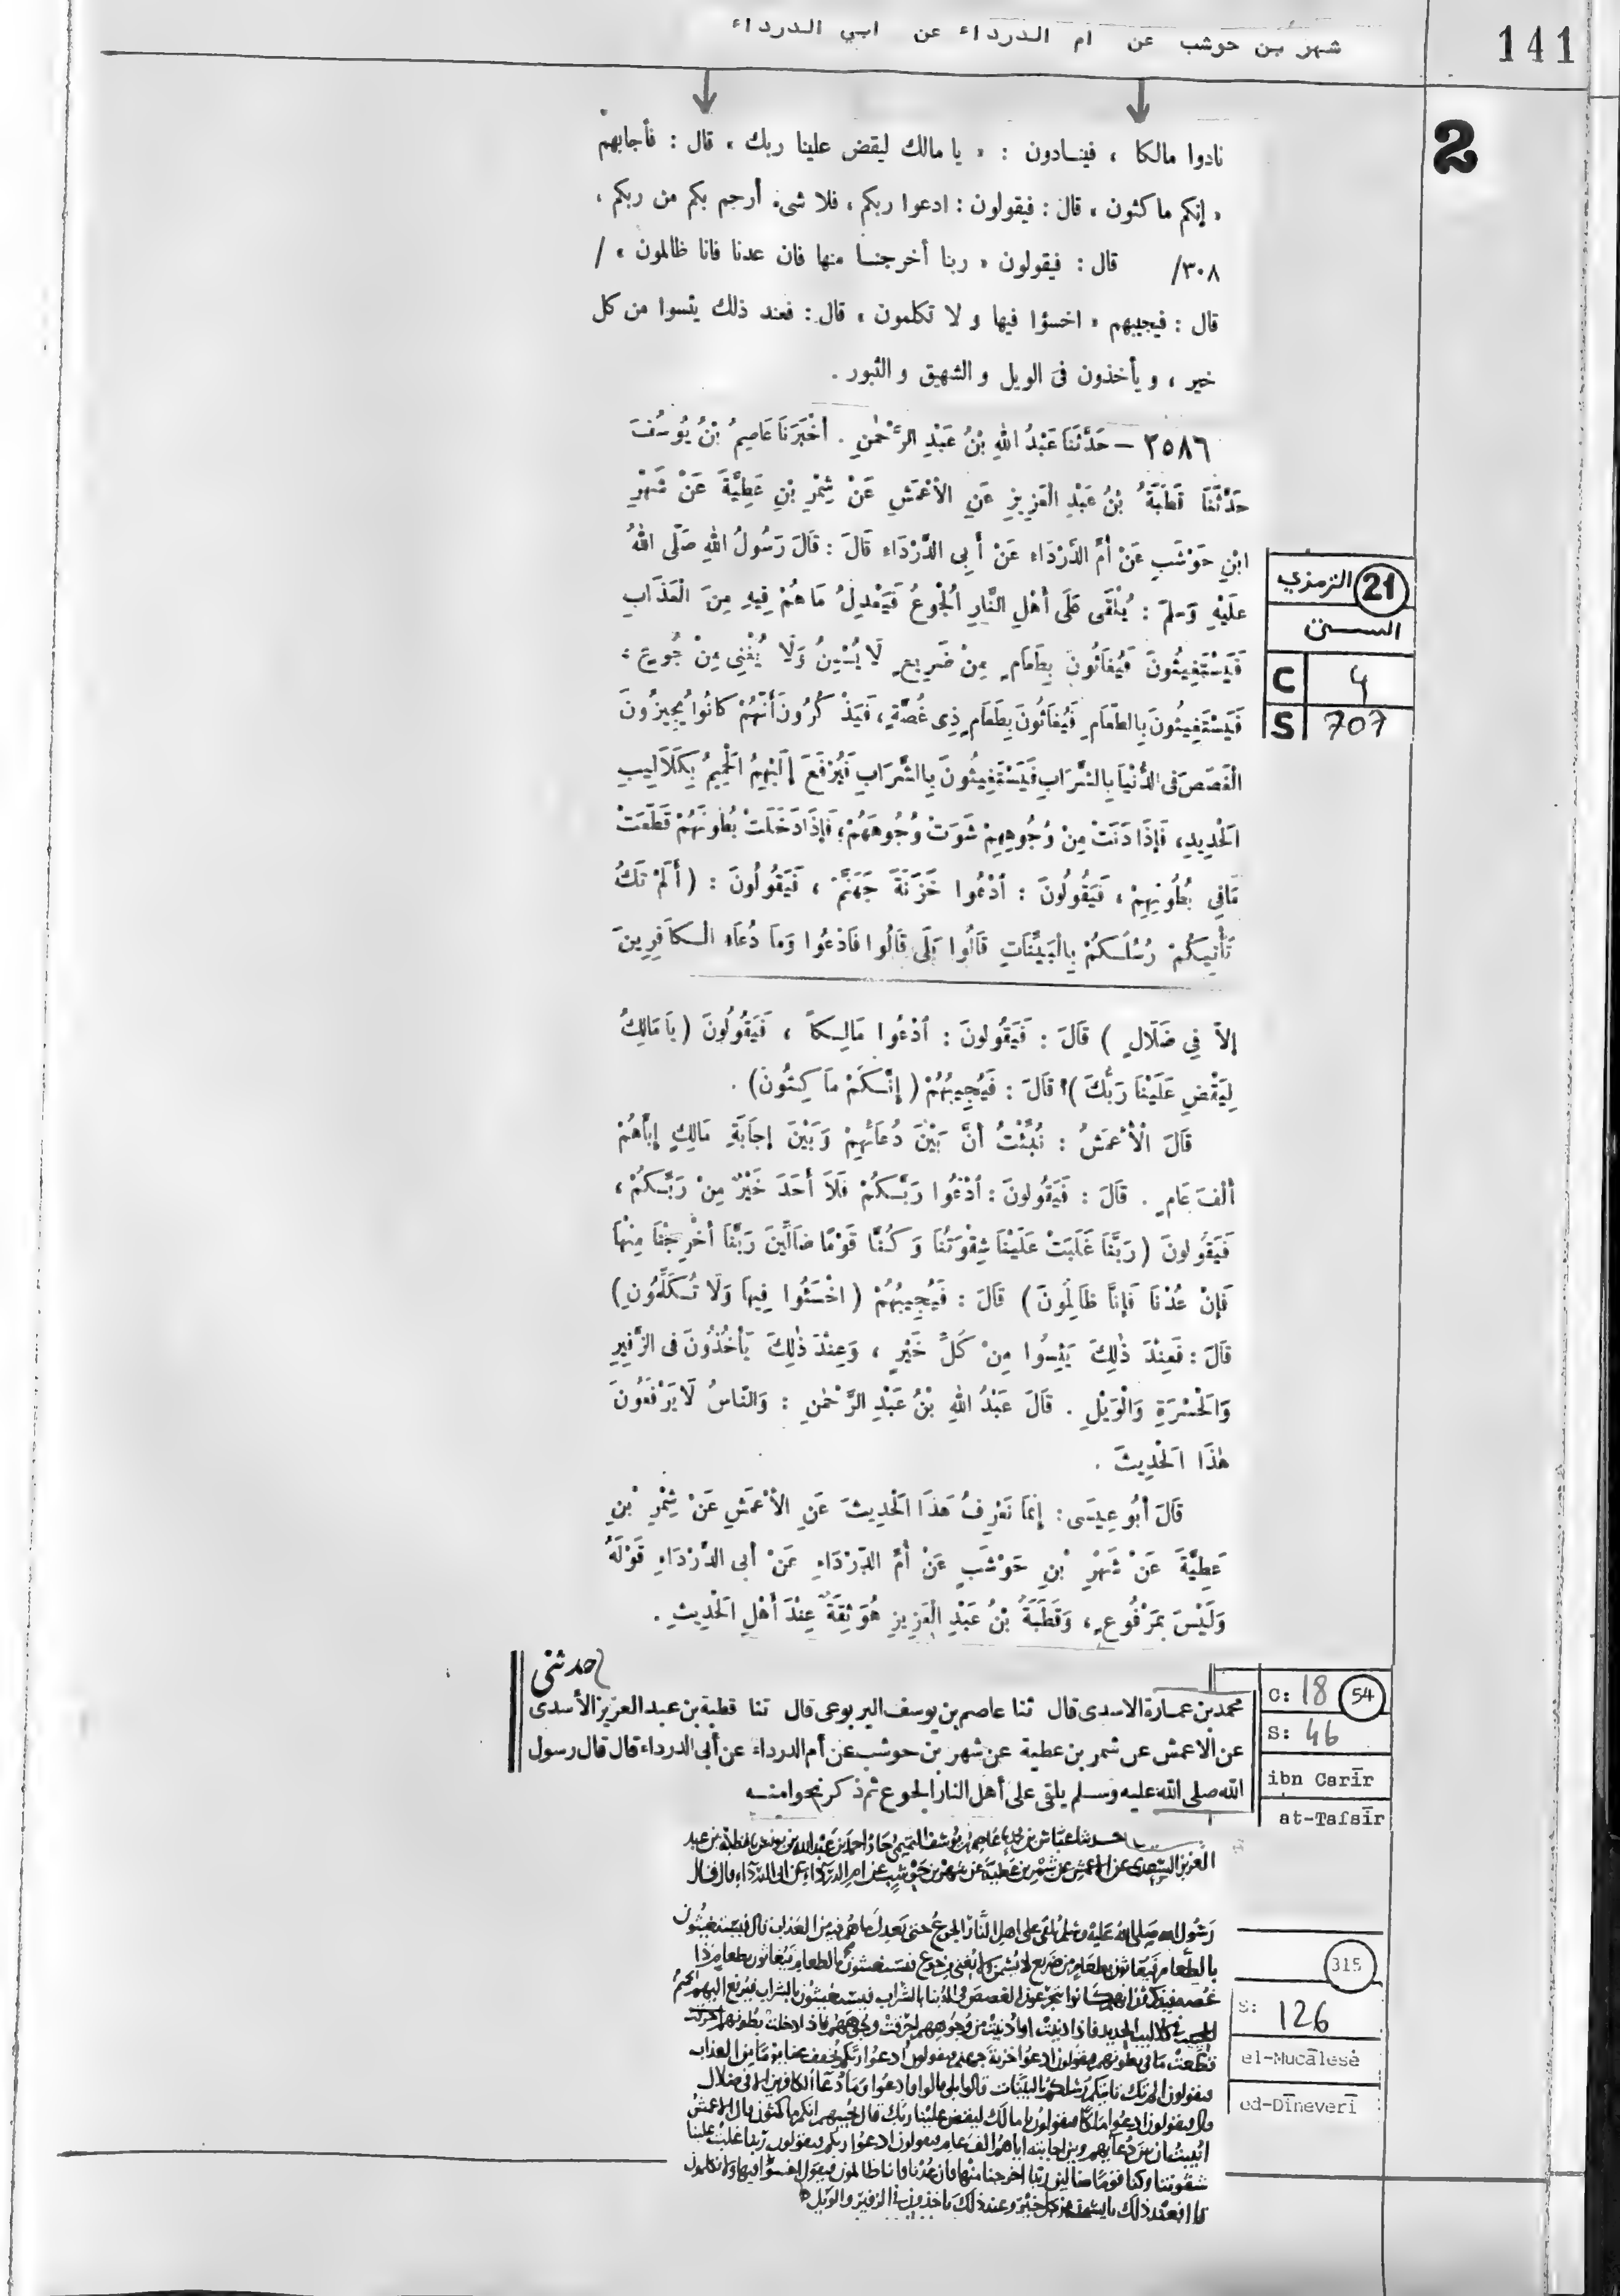 141
شهر بن حوشب عن ام الدرداء عن ابي الدرداء
2
نادوا مالكا ، فينادون : « يا مالك ليقض علينا ربك » قال : فأجابهم
« إنكم ماكثون » قال : فيقولون : ادعوا ربكم ، فلا شىء أرحم بكم من ربكم ،
٣٠٨/ قال : فيقولون « ربنا أخرجنا منها فان عدنا فانا ظالمون » /
قال : فيجيبهم « اخسؤا فيها و لا تكلمون » قال : فعند ذلك يئسوا من كل
خير ، و يأخذون فى الويل و الشهيق و الثبور .
٢٥٨٦ – حَدَّثَنَا عَبْدُ اللهِ بْنُ عَبْدِ الرَّحْمٰنِ . أَخْبَرَنَا عَاصِمُ بْنُ يُوسُفَ
حَدَّثَنَا قُطْبَةُ بْنُ عَبْدِ الْعَزِيزِ عَنِ الأَعْمَشِ عَنْ شِمْرِ بْنِ عَطِيَّةَ عَنْ شَهْرِ
ابْنِ حَوْشَبٍ عَنْ أُمِّ الدَّرْدَاءِ عَنْ أَبِى الدَّرْدَاءِ قَالَ : قَالَ رَسُولُ اللهِ صَلَّى اللهُ
عَلَيْهِ وَسَلَّمَ : يُلْقَى عَلَى أَهْلِ النَّارِ الْجُوعُ فَيَعْدِلُ مَا هُمْ فِيهِ مِنَ الْعَذَابِ
فَيَسْتَغِيثُونَ فَيُغَاثُونَ بِطَعَامٍ مِنْ ضَرِيعٍ لَا يُسْمِنُ وَلَا يُغْنِى مِنْ جُوعٍ ،
فَيَسْتَغِيثُونَ بِالطَّعَامِ فَيُغَاثُونَ بِطَعَامٍ ذِى غُصَّةٍ ، فَيَذْكُرُونَ أَنَّهُمْ كَانُوا يُجِيزُونَ
الْغَصَصَ فى الدُّنْيَا بِالشَّرَابِ فَيَسْتَغِيثُونَ بِالشَّرَابِ فَيُرْفَعُ إِلَيْهِمُ الْحَمِيمُ بِكَلَالِيبِ
الْحَدِيدِ ، فَإِذَا دَنَتْ مِنْ وُجُوهِهِمْ شَوَتْ وُجُوهَهُمْ ، فَإِذَا دَخَلَتْ بُطُونَهُمْ قَطَّعَتْ
مَافِى بُطُونِهِمْ ، فَيَقُولُونَ : اُدْعُوا خَزَنَةَ جَهَنَّمَ ، فَيَقُولُونَ : ( أَلَمْ تَكُ
تَأْتِيكُمْ رُسُلُكُمْ بِالْبَيِّنَاتِ قَالُوا بَلَى قَالُوا فَادْعُوا وَمَا دُعَاءُ الْكَافِرِينَ
إِلاَّ فِي ضَلَالٍ ) قَالَ : فَيَقُولُونَ : اُدْعُوا مَالِكاً ، فَيَقُولُونَ ( يَا مَالِكُ
لِيَقْضِ عَلَيْنَا رَبُّكَ ) قَالَ : فَيُجِيبُهُمْ ( إِنَّكُمْ مَاكِثُونَ ) .
قَالَ الْأَعْمَشُ : نُبِّئْتُ أَنَّ بَيْنَ دُعَائِهِمْ وَبَيْنَ إِجَابَةِ مَالِكٍ إِيَّاهُمْ
أَلْفَ عَامٍ . قَالَ : فَيَقُولُونَ : اُدْعُوا رَبَّكُمْ فَلَا أَحَدَ خَيْرٌ مِنْ رَبِّكُمْ ،
فَيَقُولُونَ ( رَبَّنَا غَلَبَتْ عَلَيْنَا شِقْوَتُنَا وَكُنَّا قَوْمًا ضَالِّينَ رَبَّنَا أَخْرِجْنَا مِنْهَا
فَإِنْ عُدْنَا فَإِنَّا ظَالِمُونَ ) قَالَ : فَيُجِيبُهُمْ ( اخْسَئُوا فِيهَا وَلَا تُكَلِّمُونِ )
قَالَ : فَعِنْدَ ذٰلِكَ يَئِسُوا مِنْ كُلِّ خَيْرٍ ، وَعِنْدَ ذٰلِكَ يَأْخُذُونَ فى الزَّفِيرِ
وَالْحَسْرَةِ وَالْوَيْلِ . قَالَ عَبْدُ اللهِ بْنُ عَبْدِ الرَّحْمٰنِ : وَالنَّاسُ لَا يَرْفَعُونَ
هٰذَا الْحَدِيثَ .
قَالَ أَبُو عِيسَى : إِنَّمَا نَعْرِفُ هَذَا الْحَدِيثَ عَنِ الأَعْمَشِ عَنْ شِمْرِ بْنِ
عَطِيَّةَ عَنْ شَهْرِ بْنِ حَوْشَبٍ عَنْ أُمِّ الدَّرْدَاءِ عَنْ أَبى الدَّرْدَاءِ قَوْلَهُ
وَلَيْسَ بِمَرْفُوعٍ ، وَقُطْبَةُ بْنُ عَبْدِ الْعَزِيزِ هُوَ ثِقَةٌ عِنْدَ أَهْلِ الْحَدِيثِ .
21 الترمذي
السنن
C 4
S 707
حدثنى
محمد بن عمارة الاسدى قال ثنا عاصم بن يوسف اليربوعى قال ثنا قطبة بن عبد العزيز الأسدى
عن الاعمش عن شمر بن عطية عن شهر بن حوشب عن أم الدرداء عن أبى الدرداء قال قال رسول
الله صلى الله عليه وسلم يلقى على أهل النار الجوع ثم ذكر نحوا منه
C: 18 54
S: 46
ibn Carīr
at-Tafsīr
حدثنا عباس بن محمد نا عاصم بن يوسف التميمي جار احمد بن عبد الله بن يونس نا قطبة بن عبد
العزيز السعدى عن الاعمش عن شمر بن عطية عن شهر بن حوشب عن ام الدرداء عن ابى الدرداء قال قال
رسول الله صلى الله عليه وسلم يلقى على اهل النار الجوع حتى يعدل ما هم فيه من العذاب قال فيستغيثون
بالطعام فيغاثون بطعام من ضريع لا يسمن ولا يغنى من جوع فيستغيثون بالطعام فيغاثون بطعام ذا
غصة فيذكرون انهم كانوا يجيزون الغصص فى الدنيا بالشراب فيستغيثون بالشراب فيرفع اليهم
بكلاليب الحديد فاذا دنت من وجوههم وجوههم فاذا دخلت بطونهم
قطعت ما فى بطونهم فيقولون ادعوا خزنة جهنم فيقولون ادعوا ربكم يخفف عنا يوما من العذاب
فيقولون الم تك تاتيكم رسلكم بالبينات قالوا بلى قالوا فادعوا وما دعا الكافرين الا فى ضلال
قال فيقولون ادعوا مالكا فيقولون يا مالك ليقض علينا ربك قال فيجيبهم انكم ماكثون قال الاعمش
انبئت ان بين دعائهم وبين اجابته اياهم الف عام فيقولون ادعوا ربكم فيقولون ربنا غلبت علينا
شقوتنا وكنا قوما ضالين ربنا اخرجنا منها فان عدنا فانا ظالمون فيقول اخسؤا فيها ولا تكلمون
قال فعند ذلك من كل خير وعند ذلك ياخذون فى الزفير والويل
315
S: 126
el-Mucālese
ed-Dīneverī